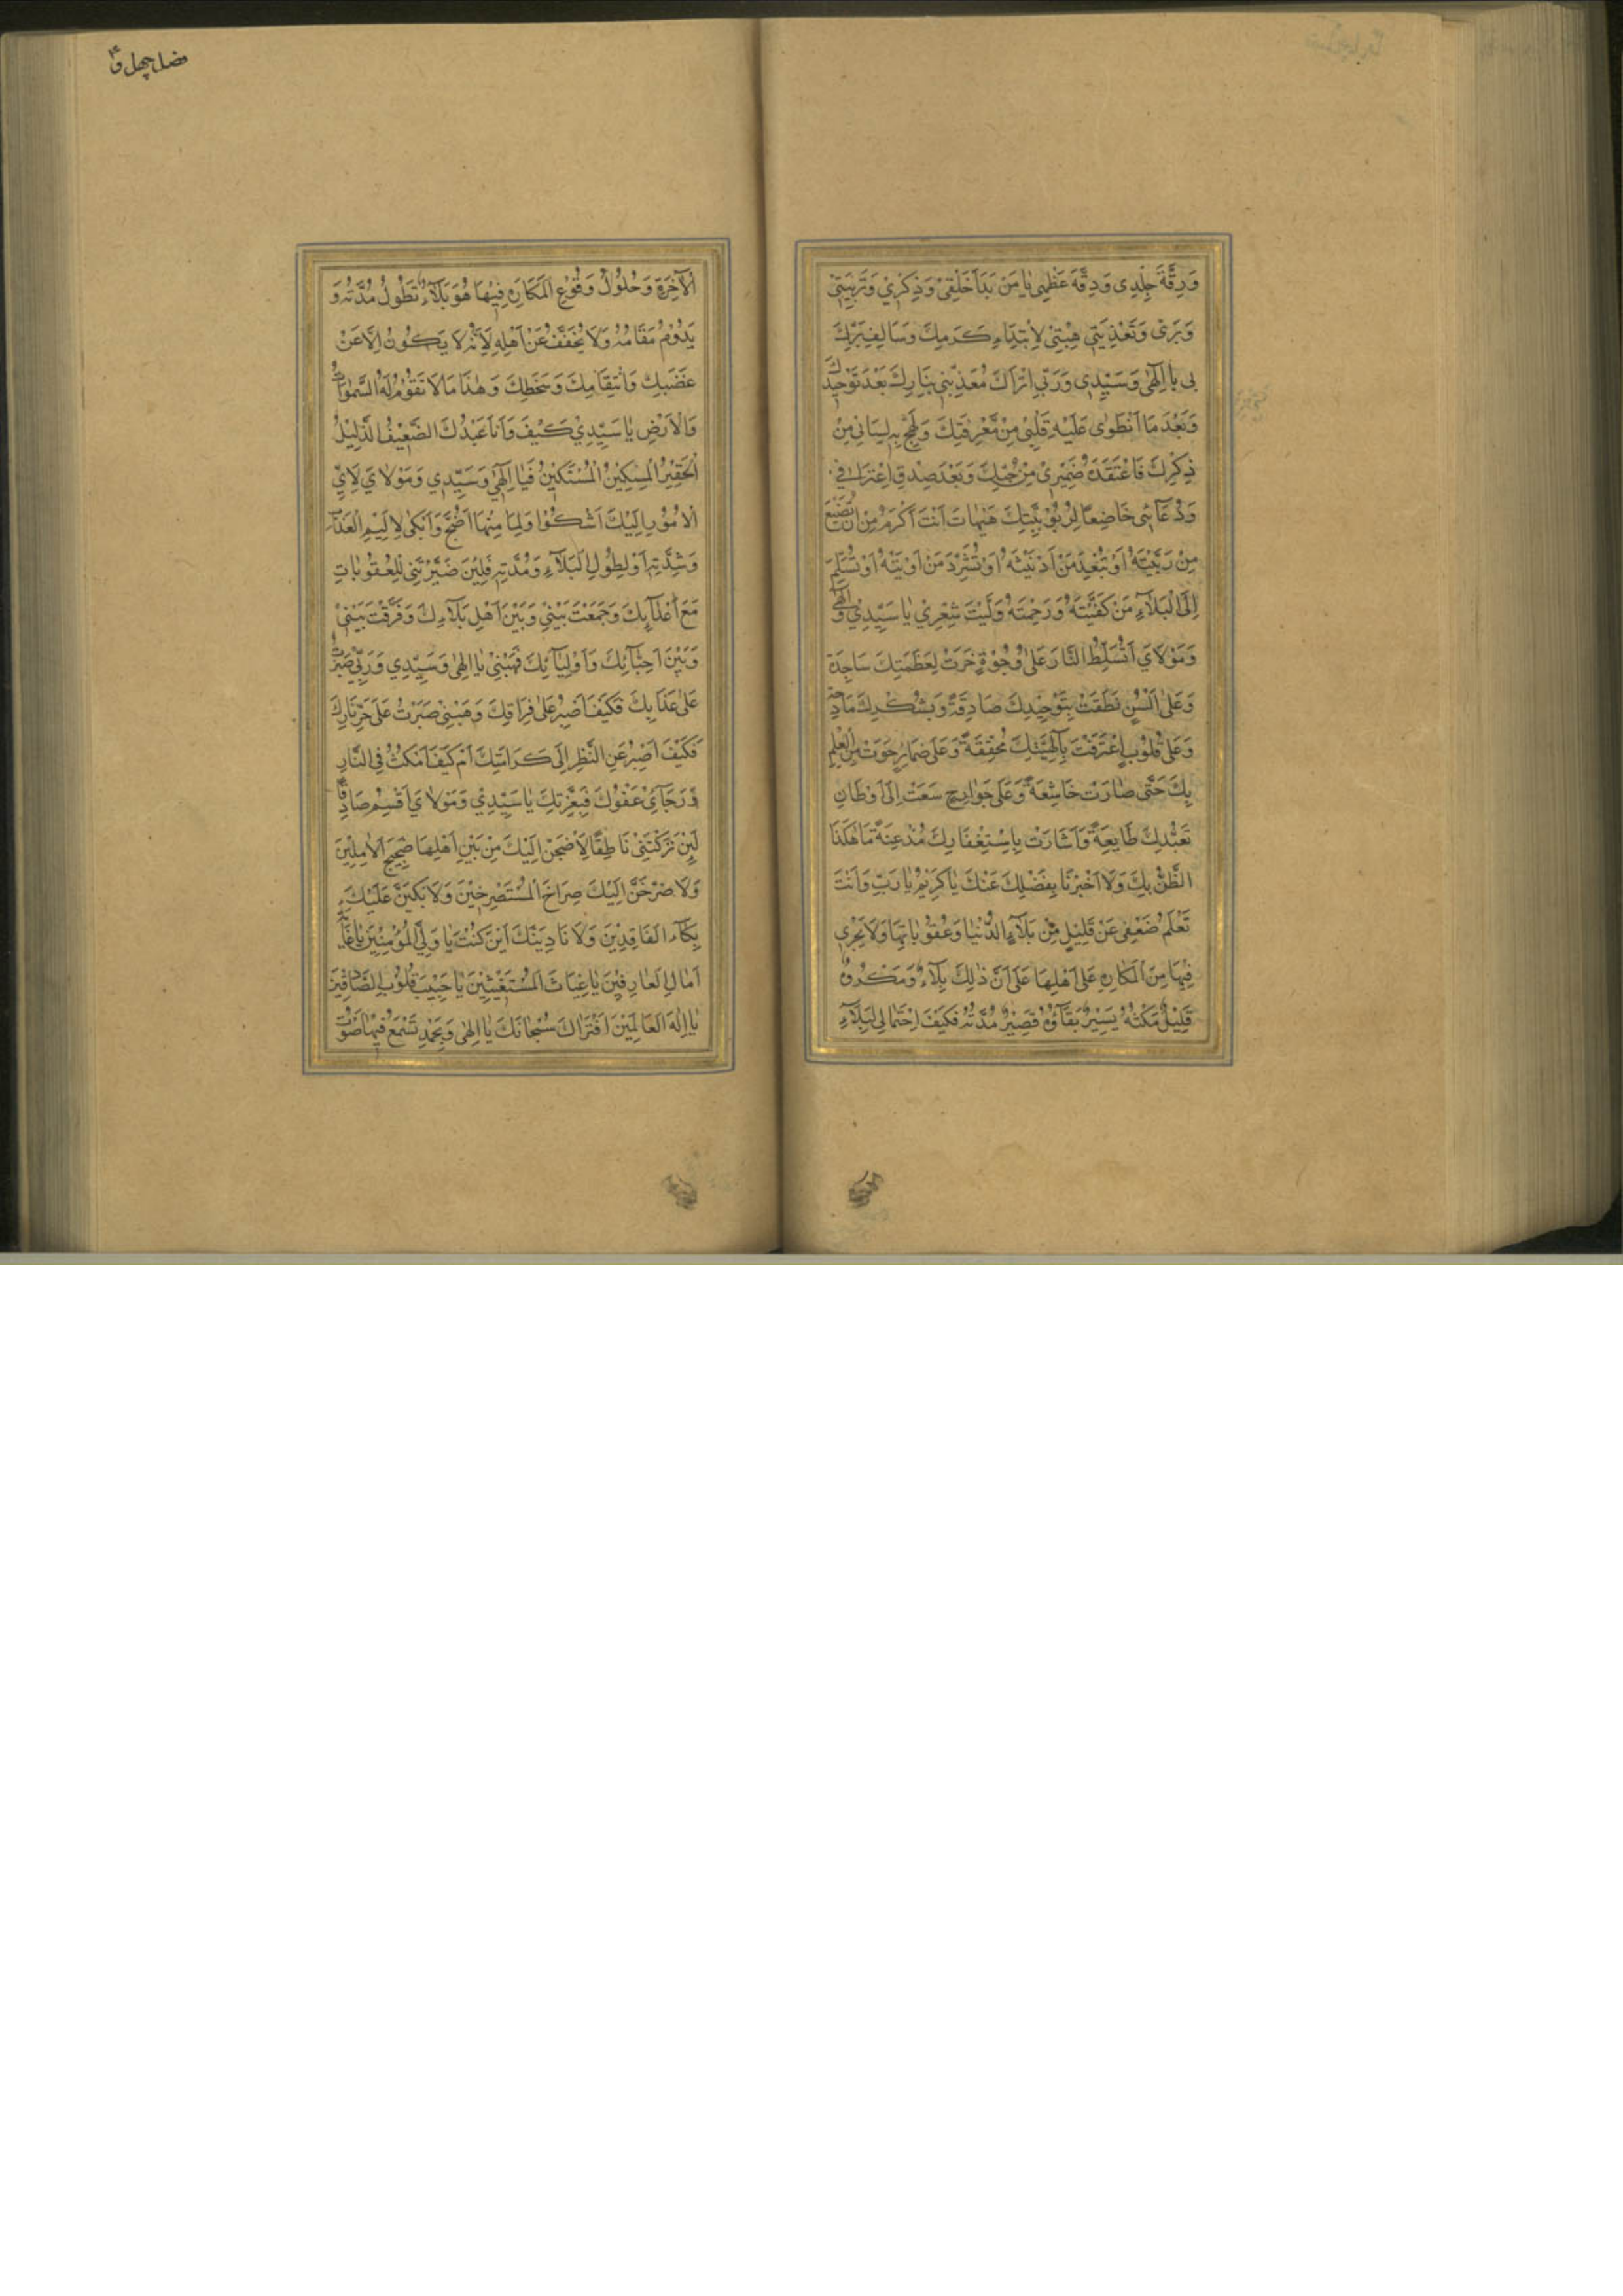 وَرِقَّةَ جِلْدِی وَدِقَّةَ عَظْمِی یٰا مَنْ بَدَاَ خَلْقِیْ وَذِکْرِیْ وَتَرْبِیَتِیْ
وَبَرِّیْ وَتَغْذِیَتِیْ هَبْنِیْ لِاِبْتِدَاۤءِ کَرَمِكَ وَسَالِفِ بَرِّكَ
بِی یا اِلٰهِیْ وَسَیِّدِی وَرَبِّی اَتُرَاكَ مُعَذِّبِیْ بِنَارِكَ بَعْدَ تَوْحِیْدِكَ
وَبَعْدَ مَا انْطَوٰی عَلَیْهِ قَلْبِیْ مِنْ مَعْرِفَتِكَ وَلَهِجَ بِهِ لِسَانِیْ مِنْ
ذِکْرِكَ فَاعْتَقَدَهُ ضَمِیْرِیْ مِنْ حُبِّكَ وَبَعْدَ صِدْقِ اِعْتِرَافِیْ
وَدُعَاۤئِیْ خَاضِعًا لِرُبُوْبِیَّتِكَ هَیْهَاتَ اَنْتَ اَکْرَمُ مِنْ اَنْ تُضَیِّعَ
مِنْ رَبَّیْتَهُ اَوْ تُبْعِدَ مَنْ اَدْنَیْتَهُ اَوْ تُشَرِّدَ مَنْ اٰوَیْتَهُ اَوْ تُسَلِّمَ
اِلَی الْبَلَاۤءِ مَنْ کَفَیْتَهُ وَرَحِمْتَهُ وَلَیْتَ شِعْرِیْ یٰا سَیِّدِیْ وَاِلٰهِیْ
وَمَوْلَایَ اَتُسَلِّطُ النَّارَ عَلٰی وُجُوْهٍ خَرَّتْ لِعَظَمَتِكَ سَاجِدَةً
وَعَلٰی اَلْسُنٍ نَطَقَتْ بِتَوْحِیْدِكَ صَادِقَةً وَبِشُکْرِكَ مَادِحَةً
وَعَلٰی قُلُوْبٍ اِعْتَرَفَتْ بِاِلٰهِیَّتِكَ مُحَقِّقَةً وَعَلٰی ضَمَاۤئِرَ حَوَتْ مِنَ الْعِلْمِ
بِكَ حَتّٰی صَارَتْ خَاشِعَةً وَعَلٰی جَوَارِحَ سَعَتْ اِلٰی اَوْطَانِ
تَعَبُّدِكَ طَایِعَةً وَاَشَارَتْ بِاِسْتِغْفَارِكَ مُذْعِنَةً مَا هٰکَذَا
الظَّنُّ بِكَ وَلَا اُخْبِرْنَا بِفَضْلِكَ عَنْكَ یٰا کَرِیْمُ یٰا رَبِّ وَاَنْتَ
تَعْلَمُ ضَعْفِیْ عَنْ قَلِیْلٍ مِنْ بَلَاۤءِ الدُّنْیٰا وَعُقُوْبَاتِهَا وَلَا یَجْرِی
فِیْهَا مِنَ الْمَکَارِهِ عَلٰی اَهْلِهَا عَلٰی اَنَّ ذٰلِكَ بَلَاۤءٌ وَمَکْرُوْهٌ
قَلِیْلٌ مَکْثُهُ یَسِیْرٌ بَقَاۤؤُهُ قَصِیْرٌ مُدَّتُهُ فَکَیْفَ اِحْتِمَالِی لِبَلَاۤءِ
فصل چهل و
اَلْاٰخِرَةِ وَحُلُوْلِ وَقُوْعِ الْمَکَارِهِ فِیْهَا هُوَ بَلَاۤءٌ تَطُوْلُ مُدَّتُهُ وَ
یَدُوْمُ مَقَامُهُ وَلَا یُخَفَّفُ عَنْ اَهْلِهِ لِاَنَّهُ لَا یَکُوْنُ اِلَّا عَنْ
غَضَبِكَ وَانْتِقَامِكَ وَسَخَطِكَ وَهٰذَا مَا لَا تَقُوْمُ لَهُ السَّمٰوَاتُ
وَالْاَرْضُ یٰا سَیِّدِیْ کَیْفَ وَاَنَا عَبْدُكَ الضَّعِیْفُ الذَّلِیْلُ
اَلْحَقِیْرُ الْمِسْکِیْنُ الْمُسْتَکِیْنُ فَیٰا اِلٰهِیْ وَسَیِّدِی وَمَوْلَایَ لِاَیِّ
الْاُمُوْرِ اِلَیْكَ اَشْکُوْا وَلِمَا مِنْهَا اَضِجُّ وَاَبْکِیْ لِاَلِیْمِ الْعَذَابِ
وَشِدَّتِهِ اَوْ لِطُوْلِ الْبَلَاۤءِ وَمُدَّتِهِ فَلَئِنْ صَیَّرْتَنِیْ لِلْعُقُوْبَاتِ
مَعَ اَعْدَاۤئِكَ وَجَمَعْتَ بَیْنِیْ وَبَیْنَ اَهْلِ بَلَاۤءِكَ وَفَرَّقْتَ بَیْنِیْ
وَبَیْنَ اَحِبَّاۤئِكَ وَاَوْلِیَاۤئِكَ فَهَبْنِیْ یٰا اِلٰهِیْ وَسَیِّدِی وَرَبِّی صَبَرْتُ
عَلٰی عَذَابِكَ فَکَیْفَ اَصْبِرُ عَلٰی فِرَاقِكَ وَهَبْنِیْ صَبَرْتُ عَلٰی حَرِّ نَارِكَ
فَکَیْفَ اَصْبِرُ عَنِ النَّظَرِ اِلٰی کَرَامَتِكَ اَمْ کَیْفَ اَمْکُثُ فِی النَّارِ
وَرَجَاۤئِیْ عَفْوُكَ فَبِعِزَّتِكَ یٰا سَیِّدِیْ وَمَوْلَایَ اُقْسِمُ صَادِقًا
لَئِنْ تَرَکْتَنِیْ نَاطِقًا لَاَضِجَّنَّ اِلَیْكَ مِنْ بَیْنِ اَهْلِهَا ضَجِیْجَ الْاٰمِلِیْنَ
وَلَاَصْرُخَنَّ اِلَیْكَ صُرَاخَ الْمُسْتَصْرِخِیْنَ وَلَاَبْکِیَنَّ عَلَیْكَ
بُکَاۤءَ الْفَاقِدِیْنَ وَلَاُنَادِیَنَّكَ اَیْنَ کُنْتَ یٰا وَلِیَّ الْمُؤْمِنِیْنَ یٰا غَایَةَ
اٰمَالِ الْعَارِفِیْنَ یٰا غِیَاثَ الْمُسْتَغِیْثِیْنَ یٰا حَبِیْبَ قُلُوْبِ الصَّادِقِیْنَ
یٰا اِلٰهَ الْعَالَمِیْنَ اَفَتُرَاكَ سُبْحَانَكَ یٰا اِلٰهِیْ وَبِحَمْدِكَ تَسْمَعُ فِیْهَا صَوْتَ